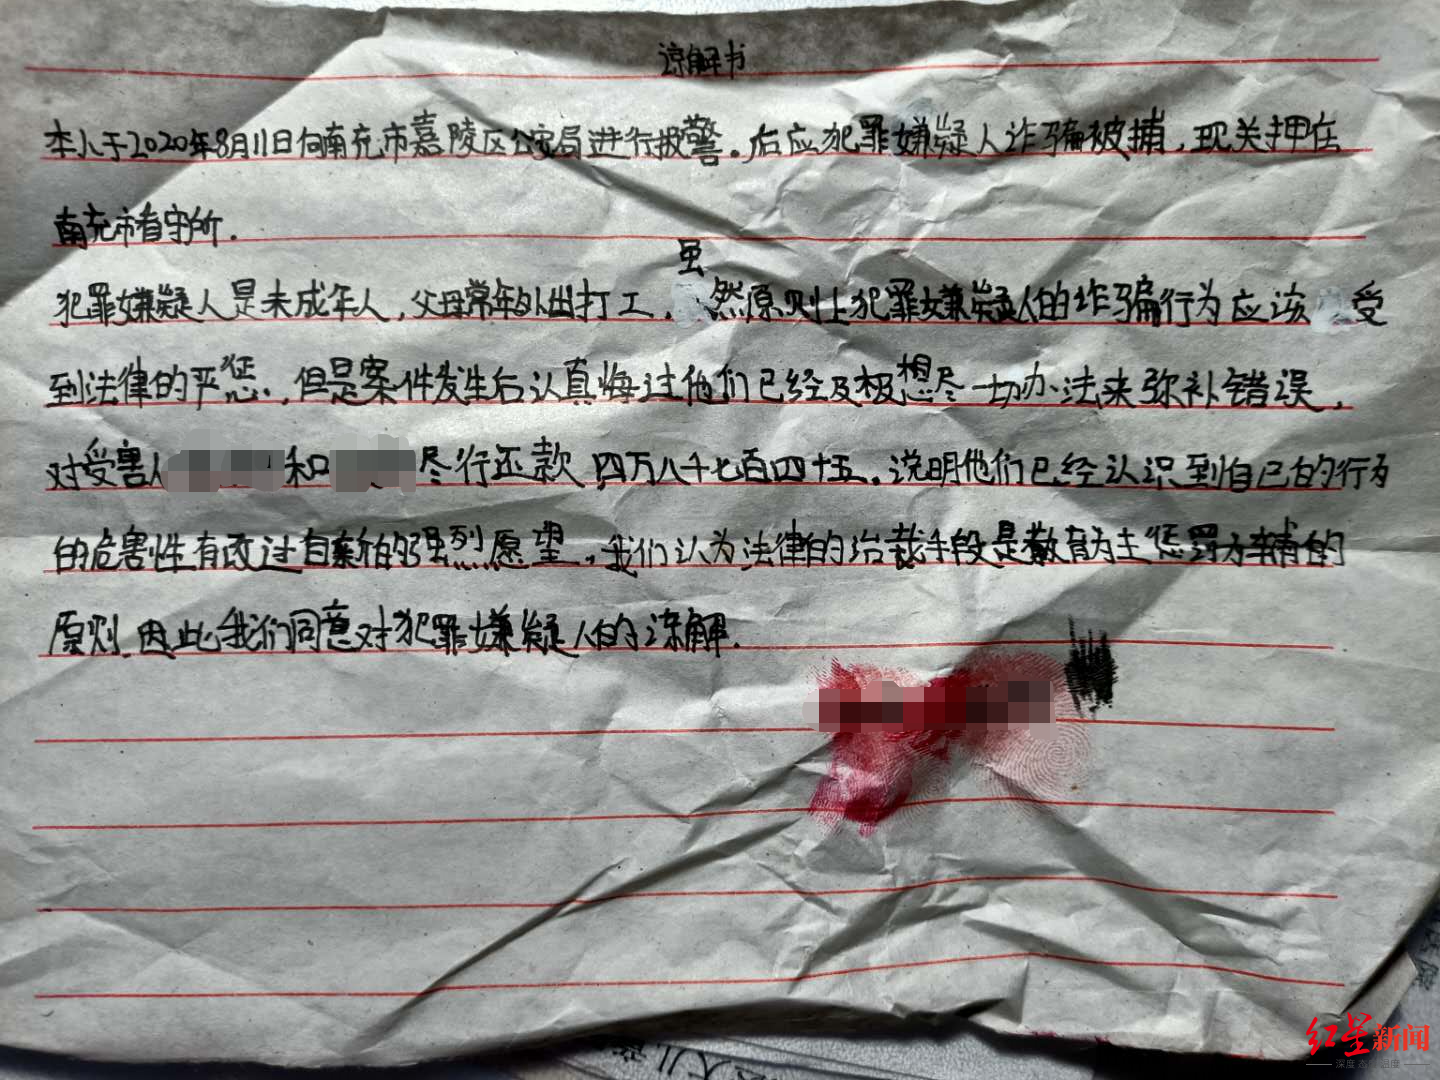 谅解书
本人于2020年8月11日向南充市嘉陵区公安局进行报警。后应犯罪嫌疑人诈骗被捕，现关押在
南充市看守所.
虽
犯罪嫌疑人是未成年人，父母常年外出打工，然原则上犯罪嫌疑人的诈骗行为应该受
到法律的严惩，但是案件发生后认真悔过他们已经及极想尽一切办法来弥补错误，
对受害人和尽行还款四万八千七百四十五，说明他们已经认识到自己的行为
的危害性有改过自新的强烈愿望，我们认为法律的治裁手段是教育为主惩罚为辅的
原则，因此我们同意对犯罪嫌疑人的谅解.
红星新闻
深度 态度 温度